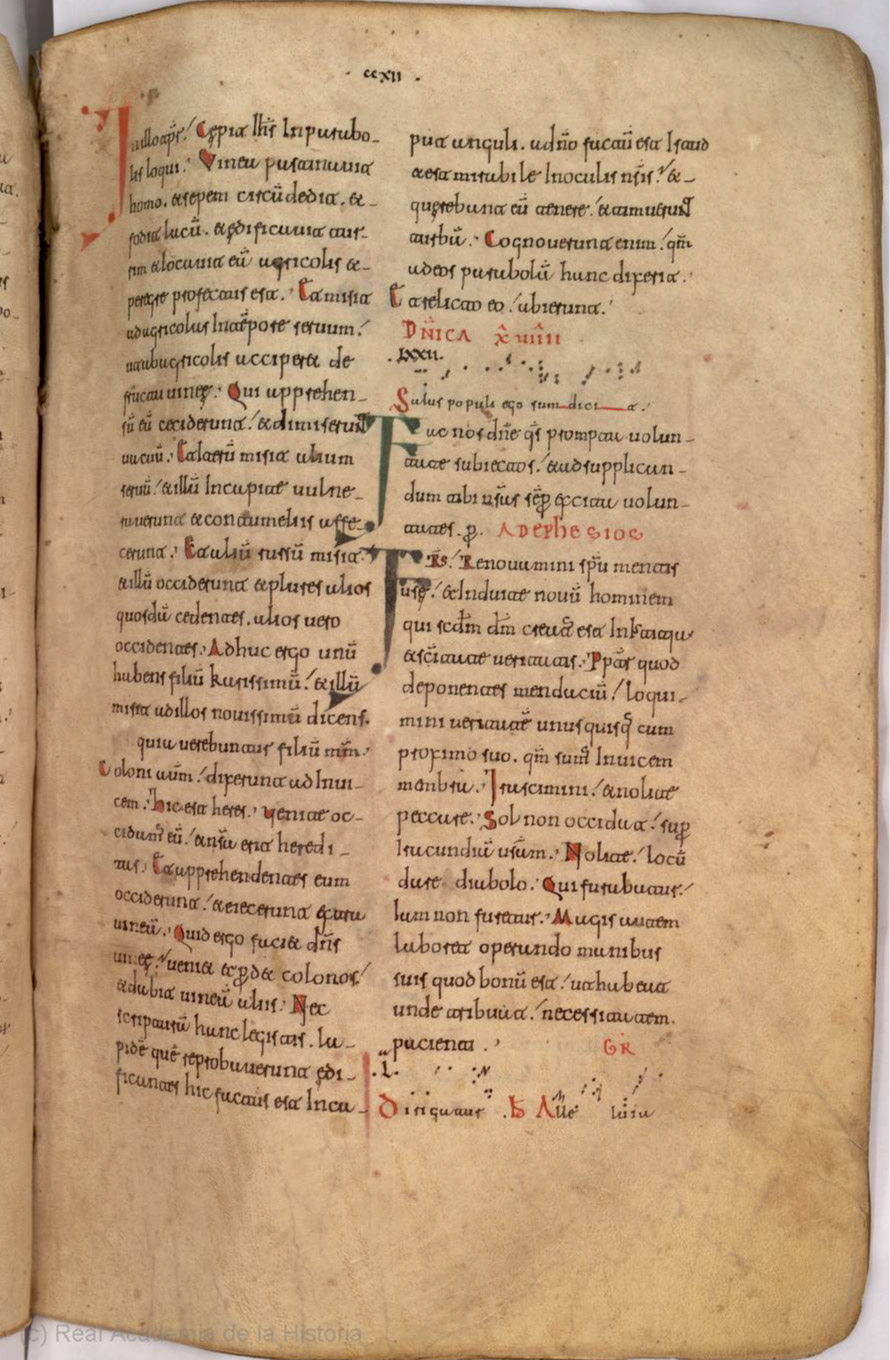 ccxii .
In illo t̄pr̄. Cepit ih̄s In parabo-
lis loqui. Vineā pastinauit
homo. et sepem circūdedit. et-
fodit lacū. et ędificauit tur-
rim et locauit eā agricolis et-
peregre profectus est. Et misit
ad agricolas In tēpore seruum.
ut ab agricolis acciperet de
fructu uineę. Qui apprehen-
sū eū ceciderunt. et dimiserunt
uacuū. Et iterū misit alium
seruū. et illū In capite uulne-
rauerunt et contumeliis affe-
cerunt. Et aliū rursū misit.
et illū occiderunt et plures alios
quosdā cedentes. alios uero
occidentes. Adhuc ergo unū
habens filiū karissimū. et illū
misit ad illos nouissimū dicens.
quia uerebuntur filiū mm̄.
Coloni aūm. dixerunt ad Inui-
cem. hic est heres. uenite oc-
cidam' eū. et nr̄a erit heredi-
tas. Et apprehendentes eum
occiderunt. et eiecerunt extra
uineā. Quid ergo faciet dn̄s
uineę. ueniet et ꝑdet colonos
et dabit uineā aliis. Nec
scripturā hanc legistis. la-
pidē quē reprobauerunt ędi-
ficantes hic factus est In ca-
put anguli. a dn̄o factū est Istud
et est mirabile In oculis nr̄is. et-
querebant eū tenere. et timuerunt
turbā. Cognouerunt enim. qm̄
ad eos parabolā hanc dixerit.
Et relicto eo. abierunt.
DN̄ICA X̄UIIII
. LXXII.
Salus populi ego sum dicit.
Fac nos dn̄e qs̄ prompta uolun-
tate subiectos. et ad supplican-
dum tibi nr̄as sēꝑ excita uolun-
tates. ꝑ. AD ephesios
FR̄s. Renouamini sp̄u mentis
ur̄ę. et Induite nouū hominem
qui scdm̄ dm̄ creat' est In Iustitia
et sc̄itate ueritatis. Ppt̄ quod
deponentes mendaciū. loqui-
mini ueritatē unusquisq; cum
proximo suo. qm̄ sum' Inuicem
menbra. Irascimini. et nolite
peccare. Sol non occidat. suꝑ
Iracundiā ur̄am. Nolite. locū
dare diabolo. Qui furabatur.
Iam non furetur. Magis autem
laboret operando manibus
suis quod bonū est. ut habeat
unde tribuat. necessitatem.
pacienti. GR̄
. L.
Dirigatur . ƀ Aɫɫe